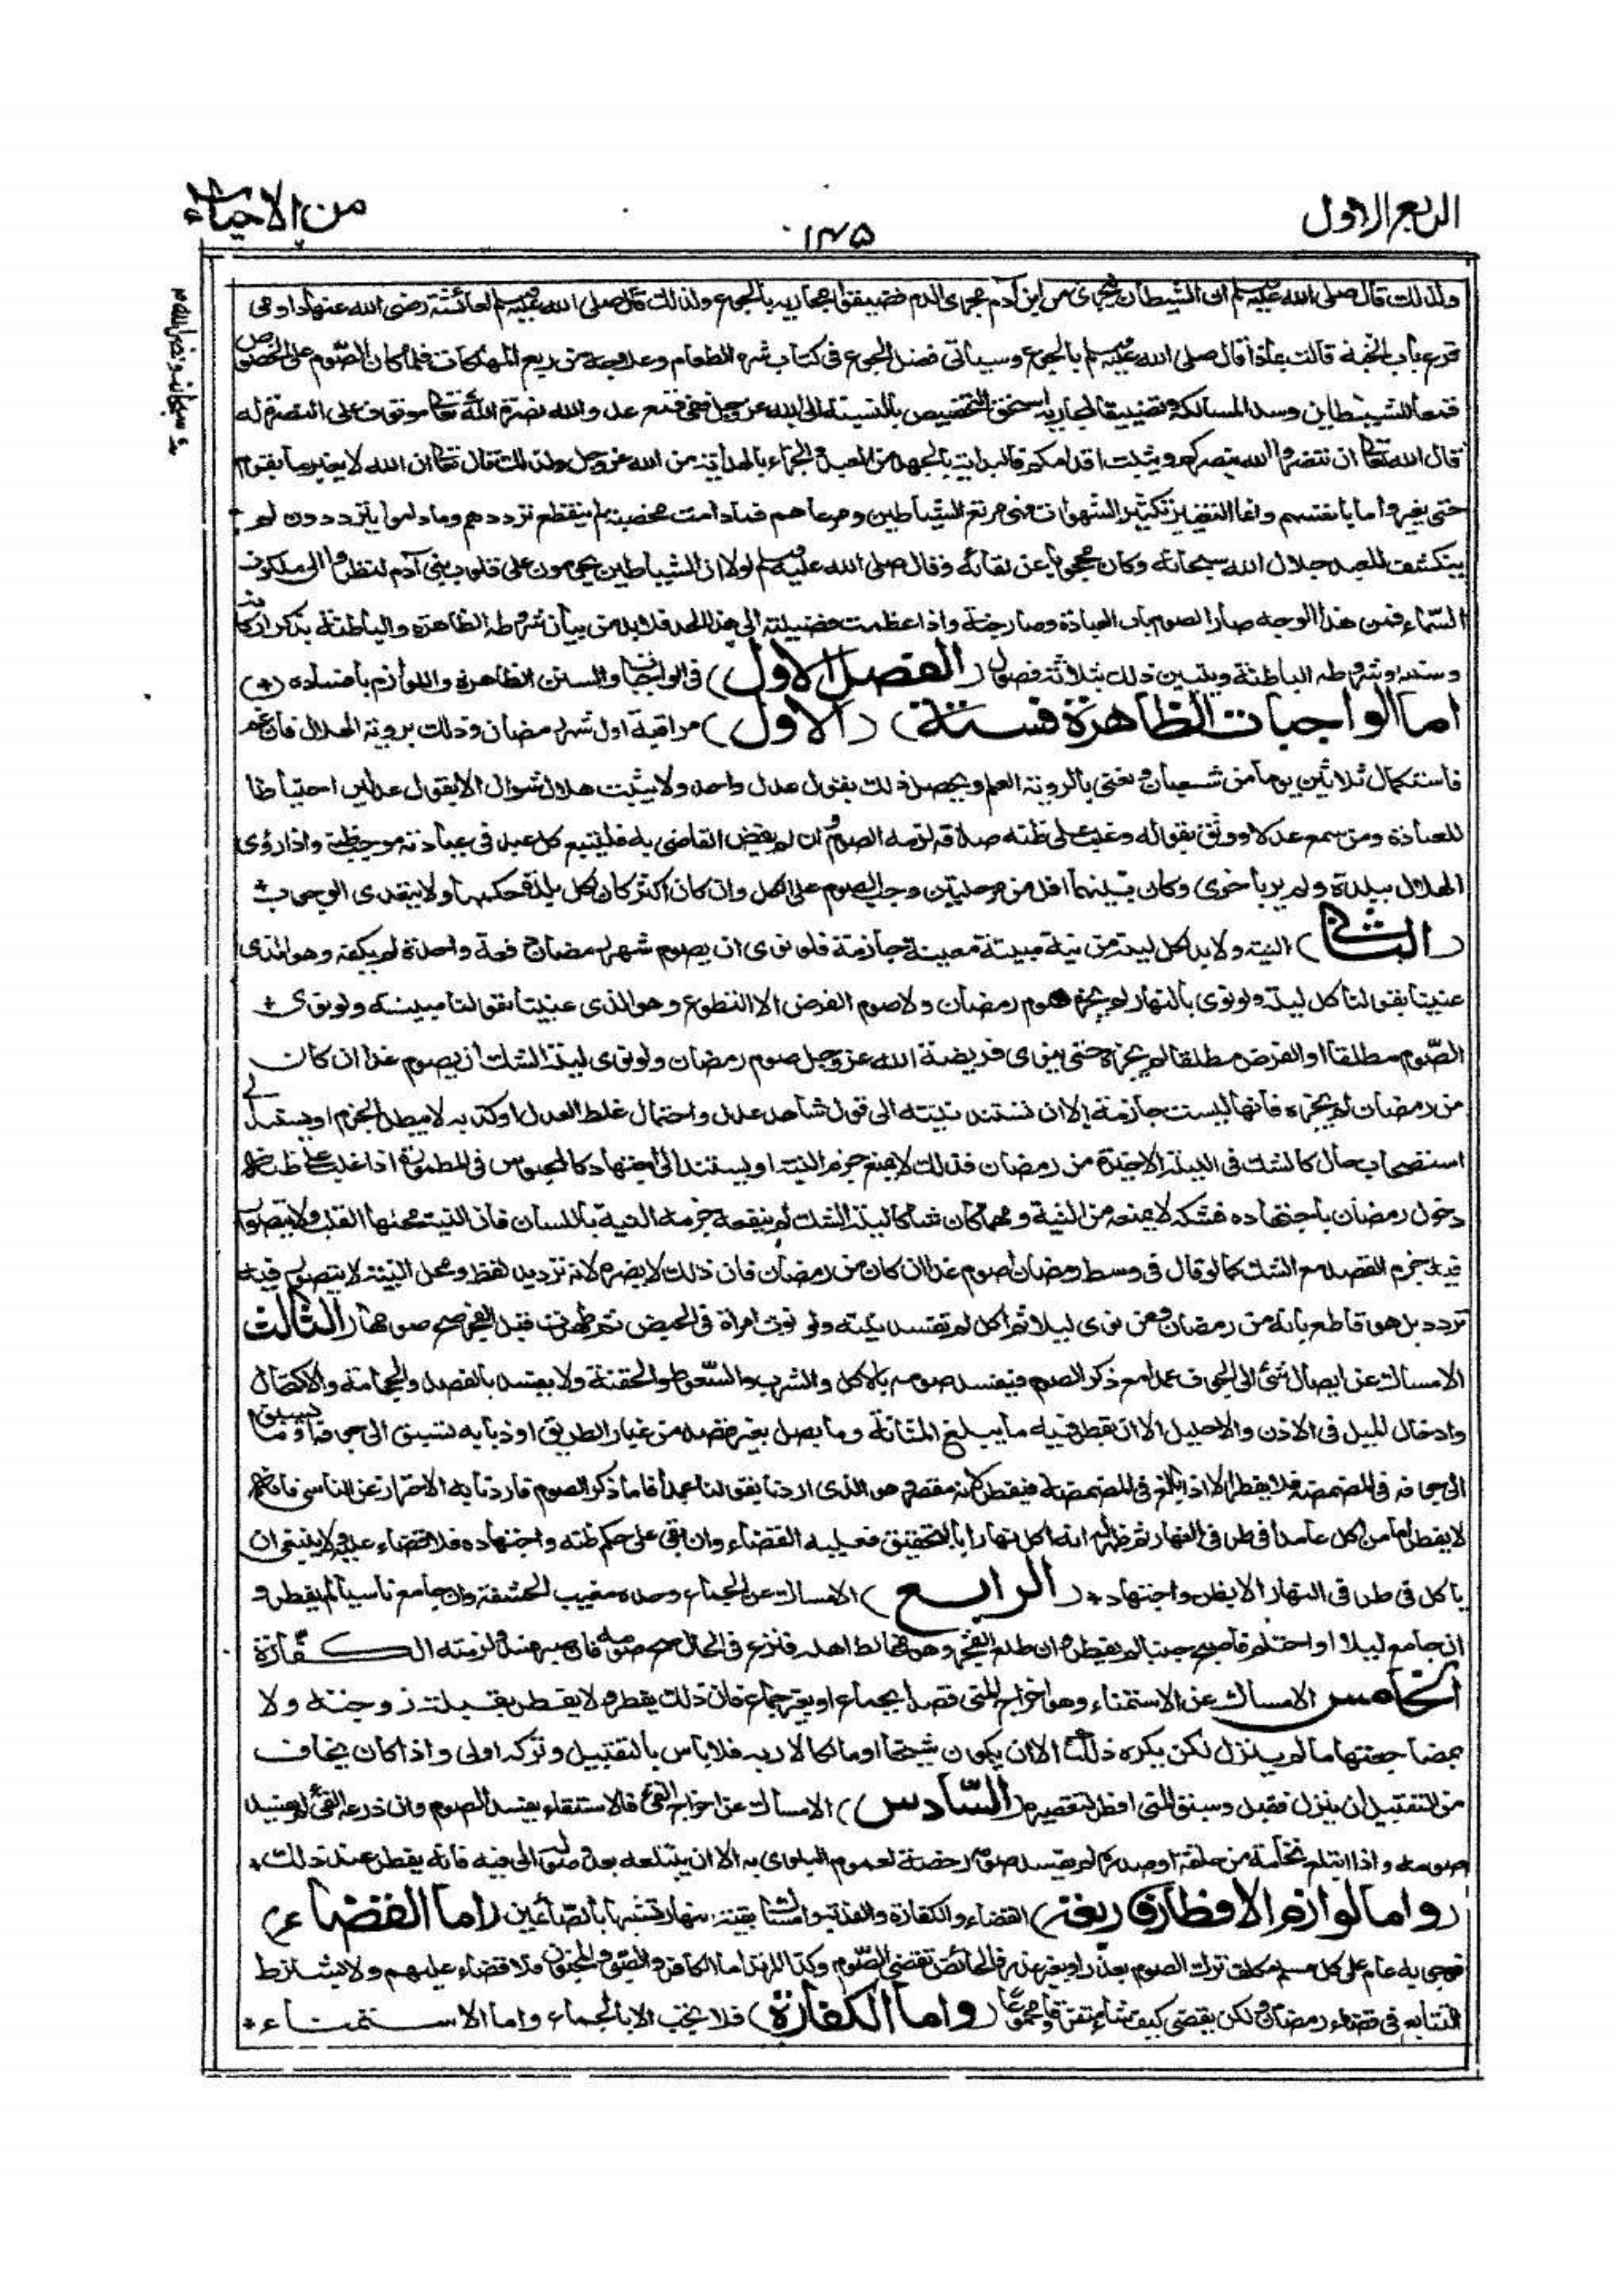 الربع الاول
١٣٥
من الاحياء
ولذلك قال صلى الله عليه وسلم ان الشيطان ليجرى من ابن آدم مجرى الدم فضيقوا مجاريه بالجوع ولذلك قال صلى الله عليه وسلم لعائشة رضى الله عنها داومى
قرع باب الجنة قالت بماذا قال صلى الله عليه وسلم بالجوع وسيأتى فضل الجوع فى كتاب شره الطعام وعلاجه من ربع المهلكات فلما كان الصوم على الخصوص
قمعا للشيطان وسدا لمسالكه وتضييقا لمجاريه استحق التخصيص بالنسبة الى الله عز وجل ففى قمع عدو الله نصرة الله تعالى موقوف على النصرة له
قال الله تعالى ان تنصروا الله ينصركم ويثبت اقدامكم فالبداية بالجهد من العبد والجزاء بالهداية من الله عز وجل ولذلك قال تعالى ان الله لا يغير ما بقوم
حتى يغيروا ما بانفسهم وانما التغيير تكثير الشهوات فهى مرتع الشياطين ومرعاهم فمادامت مخصبة لم ينقطع ترددهم وما داموا يترددون لم
ينكشف للعبد جلال الله سبحانه وكان محجوبا عن لقائه وقال صلى الله عليه وسلم لولا ان الشياطين يحومون على قلوب بنى آدم لنظروا الى ملكوت
السماء فمن هذا الوجه صار الصوم باب العبادة وصار جنة واذا عظمت فضيلته الى هذا الحد فلا بد من بيان شروطه الظاهرة والباطنة بذكر اركانه
وسننه وشروطه الباطنة ويتبين ذلك بثلاثة فصول (الفصل الاول) فى الواجبات والسنن الظاهرة واللوازم بافساده (+)
اما الواجبات الظاهرة فستة) (الاول) مراقبة اول شهر رمضان وذلك برؤية الهلال فان غم
فاستكمال ثلاثين يوما من شعبان ونعنى بالرؤية العلم ويحصل ذلك بقول عدل واحد ولا يثبت هلال شوال الا بقول عدلين احتياطا
للعبادة ومن سمع عدلا ووثق بقوله وغلب على ظنه صدقه لزمه الصوم وان لم يقض القاضى به فليتبع كل عبد فى عبادته موجب ظنه واذا رؤى
الهلال ببلدة ولم ير باخرى وكان بينهما اقل من مرحلتين وجب الصوم على الكل وان كان اكثر كان لكل بلدة حكمها ولا يتعدى الوجوب *
(الثانى) النية ولا بد لكل ليلة من نية مبيتة معينة جازمة فلو نوى ان يصوم شهر رمضان دفعة واحدة لم يكفه وهو الذى
عنينا بقولنا كل ليلة ولو نوى بالنهار لم يجزه صوم رمضان ولا صوم الفرض الا التطوع وهو الذى عنينا بقولنا مبيتة ولو نوى +
الصوم مطلقا او الفرض مطلقا لم يجزه حتى ينوى فريضة الله عز وجل صوم رمضان ولو نوى ليلة الشك ان يصوم غدا ان كان
من رمضان لم يجزه فانها ليست جازمة الا ان تستند نيته الى قول شاهد عدل واحتمال غلط العدل او كذبه لا يبطل الجزم او يستند الى
استصحاب حال كالشك فى الليلة الاخيرة من رمضان فذلك لا يمنع جزم النية او يستند الى اجتهاد كالمحبوس فى المطمورة اذا غلب على ظنه
دخول رمضان باجتهاده فشكه لا يمنعه من النية ومهما كان شاكا ليلة الشك لم ينفعه جزمه النية باللسان فان النية محلها القلب ولا يتصور
فيه جزم القصد مع الشك كما لو قال فى وسط رمضان اصوم غدا ان كان من رمضان فان ذلك لا يضره لانه ترديد لفظ ومحل النية لا يتصور فيه
تردد بل هو قاطع بانه من رمضان ومن نوى ليلا ثم اكل لم تفسد نيته ولو نوت امرأة فى الحيض ثم طهرت قبل الفجر صح صومها (الثالث
الامساك عن ايصال شئ الى الجوف عمدا مع ذكر الصوم فيفسد صومه بالاكل والشرب والسعوط والحقنة ولا يفسد بالفصد والحجامة والاكتحال
وادخال الميل فى الاذن والاحليل الا ان يقطر فيه ما يبلغ المثانة وما يصل بغير قصد من غبار الطريق او ذبابة تسبق الى جوفه او ما يسبق
الى جوفه فى المضمضة فلا يفطر الا اذا بالغ فى المضمضة فيفطر لانه مقصر وهو الذى اردنا بقولنا عمدا فاما ذكر الصوم فاردنا به الاحتراز عن الناسى فانه
لا يفطر اما من اكل عامدا فى طرفى النهار ثم ظهر له انه اكل نهارا بالتحقيق فعليه القضاء وان بقى على حكم ظنه واجتهاده فلا قضاء عليه ولا ينبغى ان
ياكل فى طرفى النهار الا بظن واجتهاد + (الرابع) الامساك عن الجماع وحده مغيب الحشفة وان جامع ناسيا لم يفطر و
ان جامع ليلا او احتلم فاصبح جنبا لم يفطر وان طلع الفجر وهو مخالط اهله فنزع فى الحال صح صومه فان صبر فسد ولزمته الكفارة
الخامس الامساك عن الاستمناء وهو اخراج المنى قصدا بجماع او بغير جماع فان ذلك يفطر ولا يفطر بقبلة زوجته ولا
بمضاجعتها ما لم ينزل لكن يكره ذلك الا ان يكون شيخا او مالكا لاربه فلا باس بالتقبيل وتركه اولى واذا كان يخاف
من التقبيل ان ينزل فقبل وسبق المنى افطر لتقصيره (السادس) الامساك عن اخراج القئ فالاستقاء يفسد الصوم وان ذرعه القئ لم يفسد
صومه واذا ابتلع نخامة من حلقه او صدره لم يفسد صومه رخصة لعموم البلوى به الا ان يبتلعه بعد وصوله الى فيه فانه يفطر عند ذلك +
(واما لوازم الافطار فاربعة) القضاء والكفارة والفدية وامساك بقية النهار تشبها بالصائمين (اما القضاء)
فوجوبه عام على كل مسلم مكلف ترك الصوم بعذر او بغير عذر فالحائض تقضى الصوم وكذا المرتد اما الكافر والصبى والمجنون فلا قضاء عليهم ولا يشترط
التتابع فى قضاء رمضان ولكن يقضى كيف شاء متفرقا ومجموعا (واما الكفارة) فلا تجب الا بالجماع واما الاستمناء +